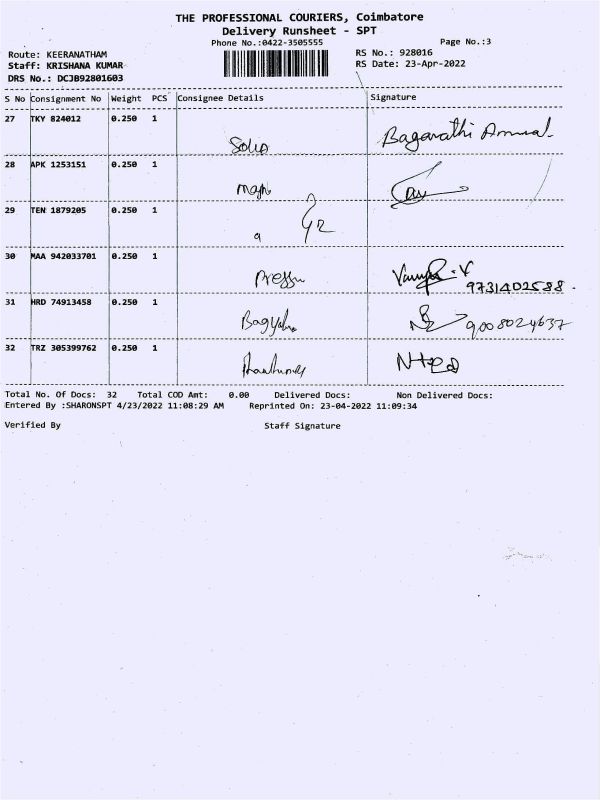 THE PROFESSIONAL COURIERS, Coimbatore
Delivery Runsheet - SPT
Phone No.:0422-3505555
Page No.:3
Route: KEERANATHAM
RS No.: 928016
Staff: KRISHANA KUMAR
RS Date: 23-Apr-2022
DRS No.: DCJB92801603
S No Consignment No Weight PCS Consignee Details Signature
27 TKY 824012 0.250 1
28 APK 1253151 0.250 1
29 TEN 1879205 0.250 1
30 MAA 942033701 0.250 1
9731402588.
31 HRD 74913458 0.250 1
9008024637
32 TRZ 305399762 0.250 1
Total No. Of Docs: 32 Total COD Amt: 0.00 Delivered Docs: Non Delivered Docs:
Entered By :SHARONSPT 4/23/2022 11:08:29 AM Reprinted On: 23-04-2022 11:09:34
Verified By Staff Signature